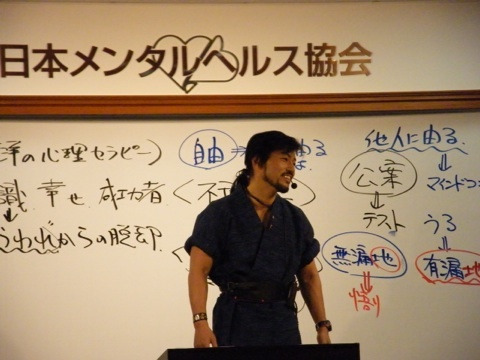 日本メンタルヘルス協会
洋の心理セラピー)
自由
由る
他人に由る
職 幸せ 成功者
公案
マインドコ
テスト
うる
われからの脱却
無漏地
有漏地
悟り